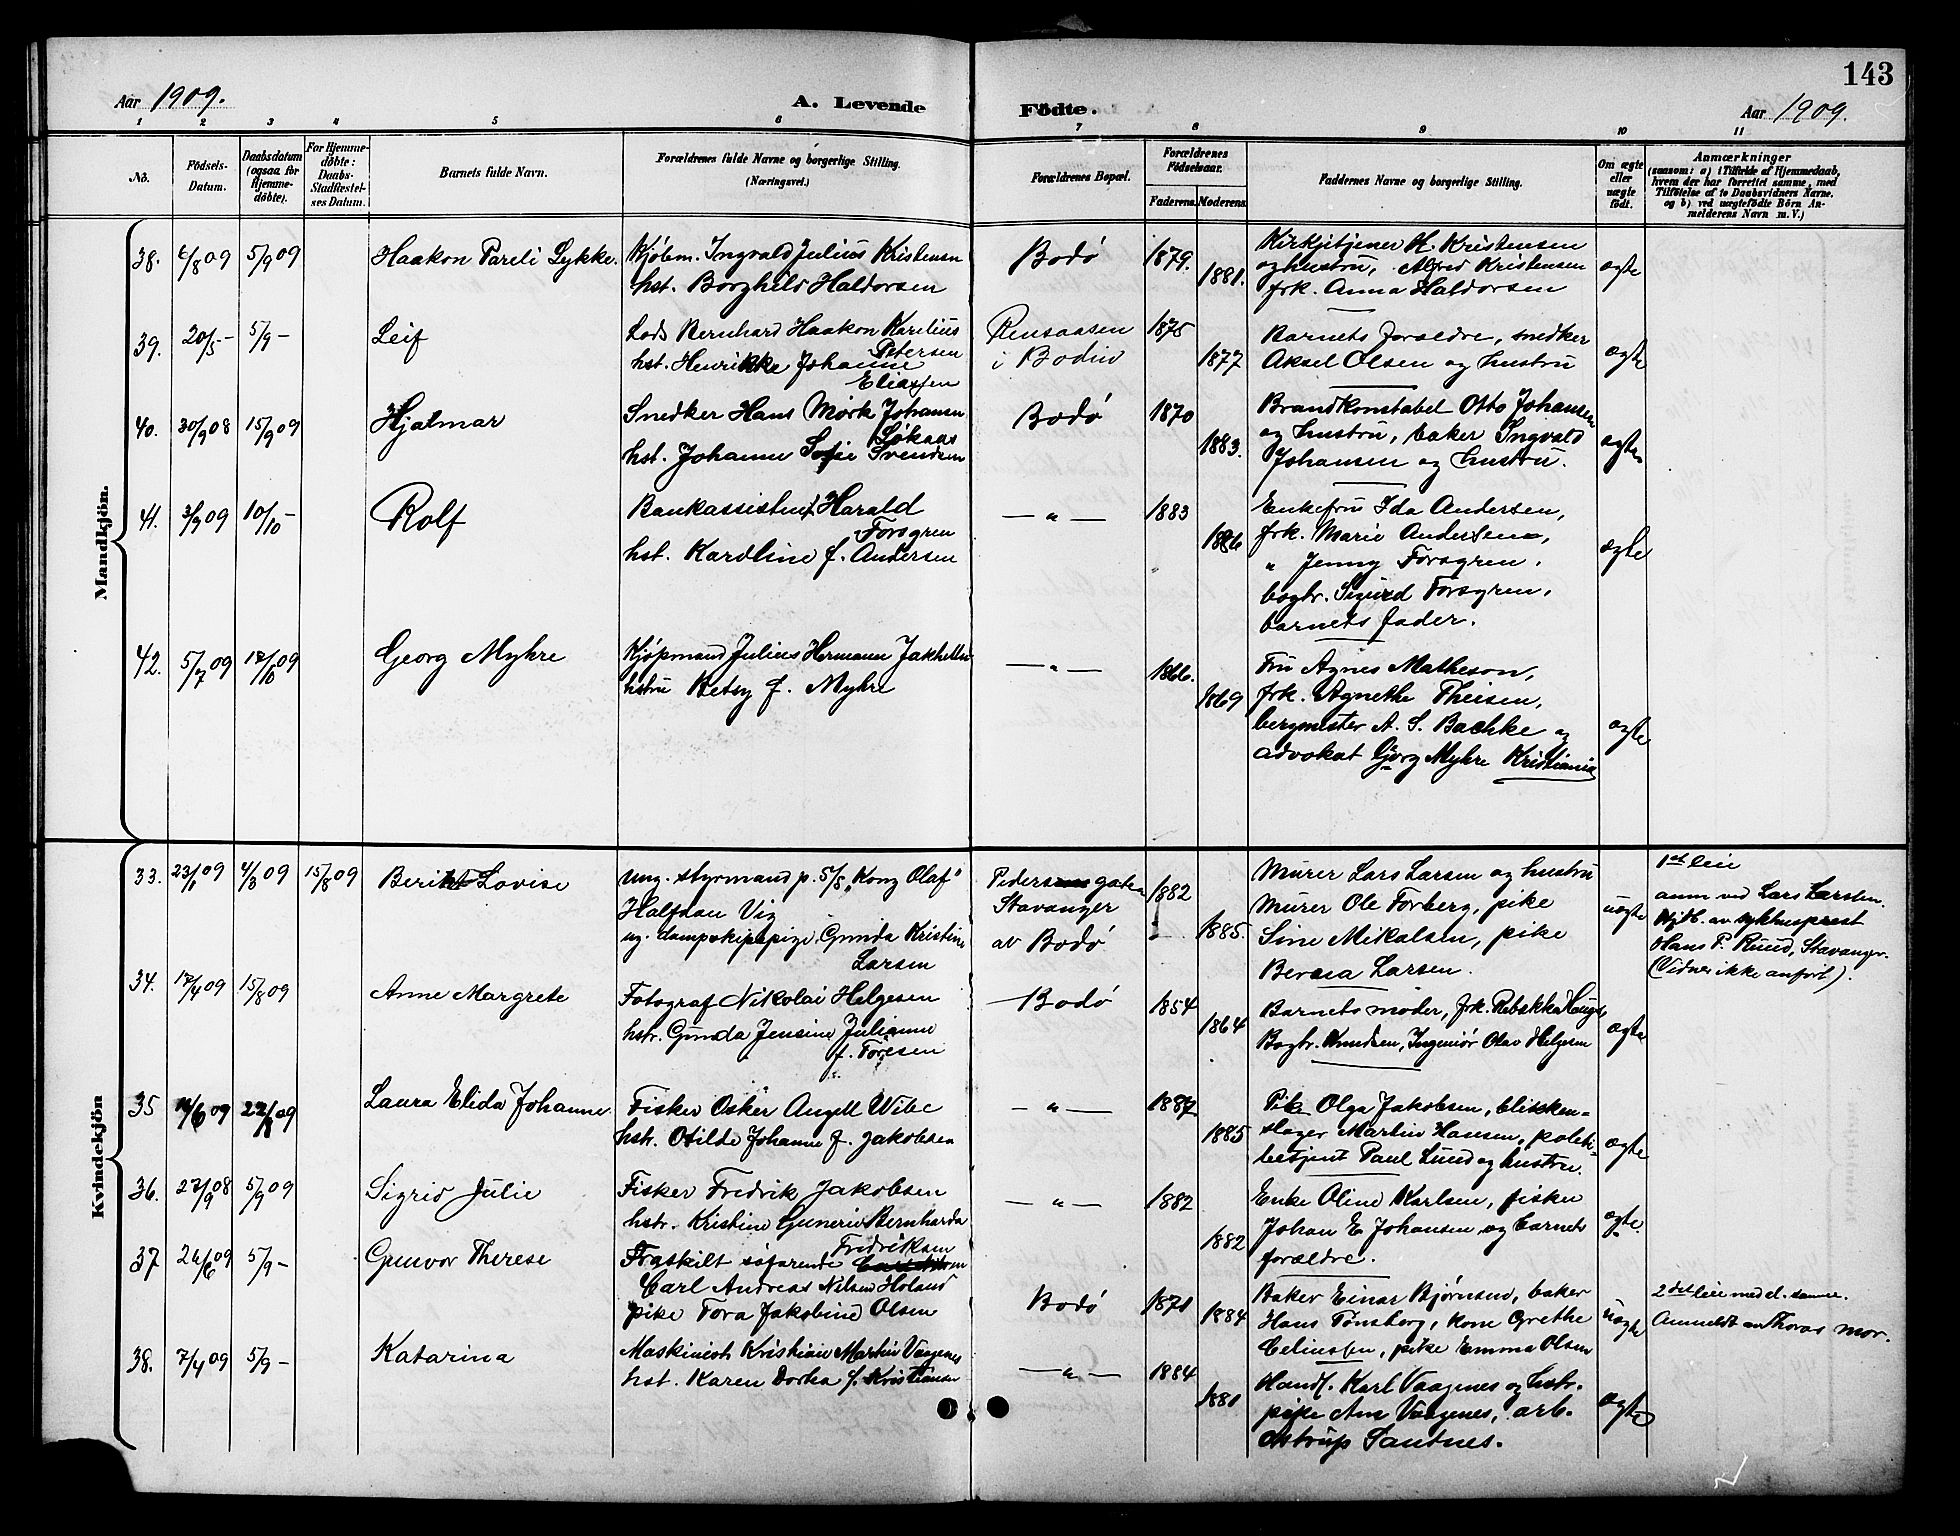 143
Aar 1909. A. Levende Födte. Aar 1909.
1 2 3 4 5 6 7 8 9 10 11
No. Födsels-Datum. Daabsdatum (ogsaa for Hjemme-döbte). For Hjemme-döbte: Daabs-Stadfæstel-ses Datum. Barnets fulde Navn. Forældrenes fulde Navne og borgerlige Stilling. (Næringsvei.) Forældrenes Bopæl. Forældrenes Födselsaar. Faderens. Moderens. Faddernes Navne og borgerlige Stilling. Om ægte eller uægte födt. Anmærkninger (saasom: a) i Tilfælde af Hjemmedaab, hvem der har forrettet samme, med Tilföielse af to Daabsvidners Navne. og b) ved uægtefödte Börn An-melderens Navn m. V.)
Mandkjön.
38. 6/8 09 5/9 09 Haakon Pareli Lykke. Kjøbm. Ingvald Julius Kristensen Bodø 1879. Kirkjetjener H. Kristensen
hst. Borghild Haldorsen 1881. og hustru, Alfred Kristensen ægte
frk. Anna Haldorsen
39. 20/5 - 5/9 - Leif Lods Bernhard Haakon Karelius Petersen Rensaasen 1875 Barnets forældre, snedker
hst. Henrikke Johanne Eliassen i Bodin 1877 Aksel Olsen og hustru ægte
40. 30/9 08 15/9 09 Hjalmar Snedker Hans Mørk Johansen Løkaas Bodø 1870 Brandkonstabel Otto Johansen
hst. Johanne Sofie Svendsen 1883. og hustru, baker Ingvald ægte
Johansen og hustru.
41. 3/9 09 10/10 - Rolf Bankassistent Harald Forsgren — " — 1883 Enkefru Ida Andersen,
hst. Karoline f. Andersen 1886 frk. Marie Andersen, ægte
" Jenny Forsgren,
bogtr. Sigurd Forsgren,
barnets fader.
42. 5/7 09 /10 09 Georg Myhre Kjøpmand Julius Hermann Jakhelln — " — 1866. Fru Agnes Matheson,
hstru Betsy f. Myhre 1869 frk. Agnethe Theisen,
bergmester A. S. Bachke og ægte
advokat Georg Myhre Kristiania
Kvindekjön
33. 23/1 09 4/3 09 15/8 09 Berit Lovise ung. styrmand p. S/S "Kong Olaf" Pedersgaten 1882 Murer Lars Larsen og hustru 1ste leie
Halfdan Vig Stavanger Murer Ole Forberg, pike uægte anm ved Lars Larsen.
ug. dampskipspige Gunda Kristine Larsen av Bodø 1885. Sine Mikalsen, pike Hjdb. av sykhusprest
Larsen. Hans P. Ruud, Stavanger.
(Vidner ikke anført).
34. 17/4 09 15/8 09 Anne Margrete Fotograf Nikolai Helgesen Bodø 1854 Barnets moder, frk. Rebekka Hauge,
hstr. Gunda Jensine Julianne f. Toresen 1864 Bogtr. Knudsen, Ingeniør Olav Helgesen ægte
35 /6 09 22/8 09 Laura Elida Johanne Fisker Oskar Angell Wibe — " — 1887 Pike Olga Jakobsen, blikken-
hstr. Otilde Johanne f. Jakobsen 1885 slager Martin Hansen, politi- ægte
betjent Paul Lund og hustru.
36. 27/9 08 5/9 09 Sigrid Julie Fisker Fredrik Jakobsen — " — 1882 Enke Oline Karlsen, fisker
hstr. Kristine Gunerie Bernharda Fredriksen 1882 Johan E Johansen og barnets ægte.
forældre.
37 26/6 09 5/9 - Gunvor Therese Fraskilt søfarende
Carl Andreas Nilsen Holand Bodø 1871 Baker Einar Bjørnsen, baker 2det leie med d. samme.
pike Tora Jakobine Olsen 1884 Hans Tønsberg, kone Grethe uægte Anmeldt av Thoras mor.
Celiussen, pike Emma Olsen
38. 7/4 09 5/9 - Katarina Maskinist Kristian Martin Vaagenes — " — 1884 Handl. Karl Vaagenes og hstr.
hst. Karen Dortea f. Kristiansen 1881 pike Ane Vaagenes, arb. ægte
Astrup Santnes.